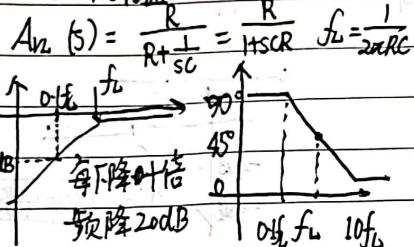 Aᵥₕ(s) = R / (R + 1/sC) = R / (1+sCR)  f_L = 1 / (2πRC)
0.1f_L f_L
90°
45°
0
dB
每下降十倍
频降20dB
0.1f_L f_L 10f_L